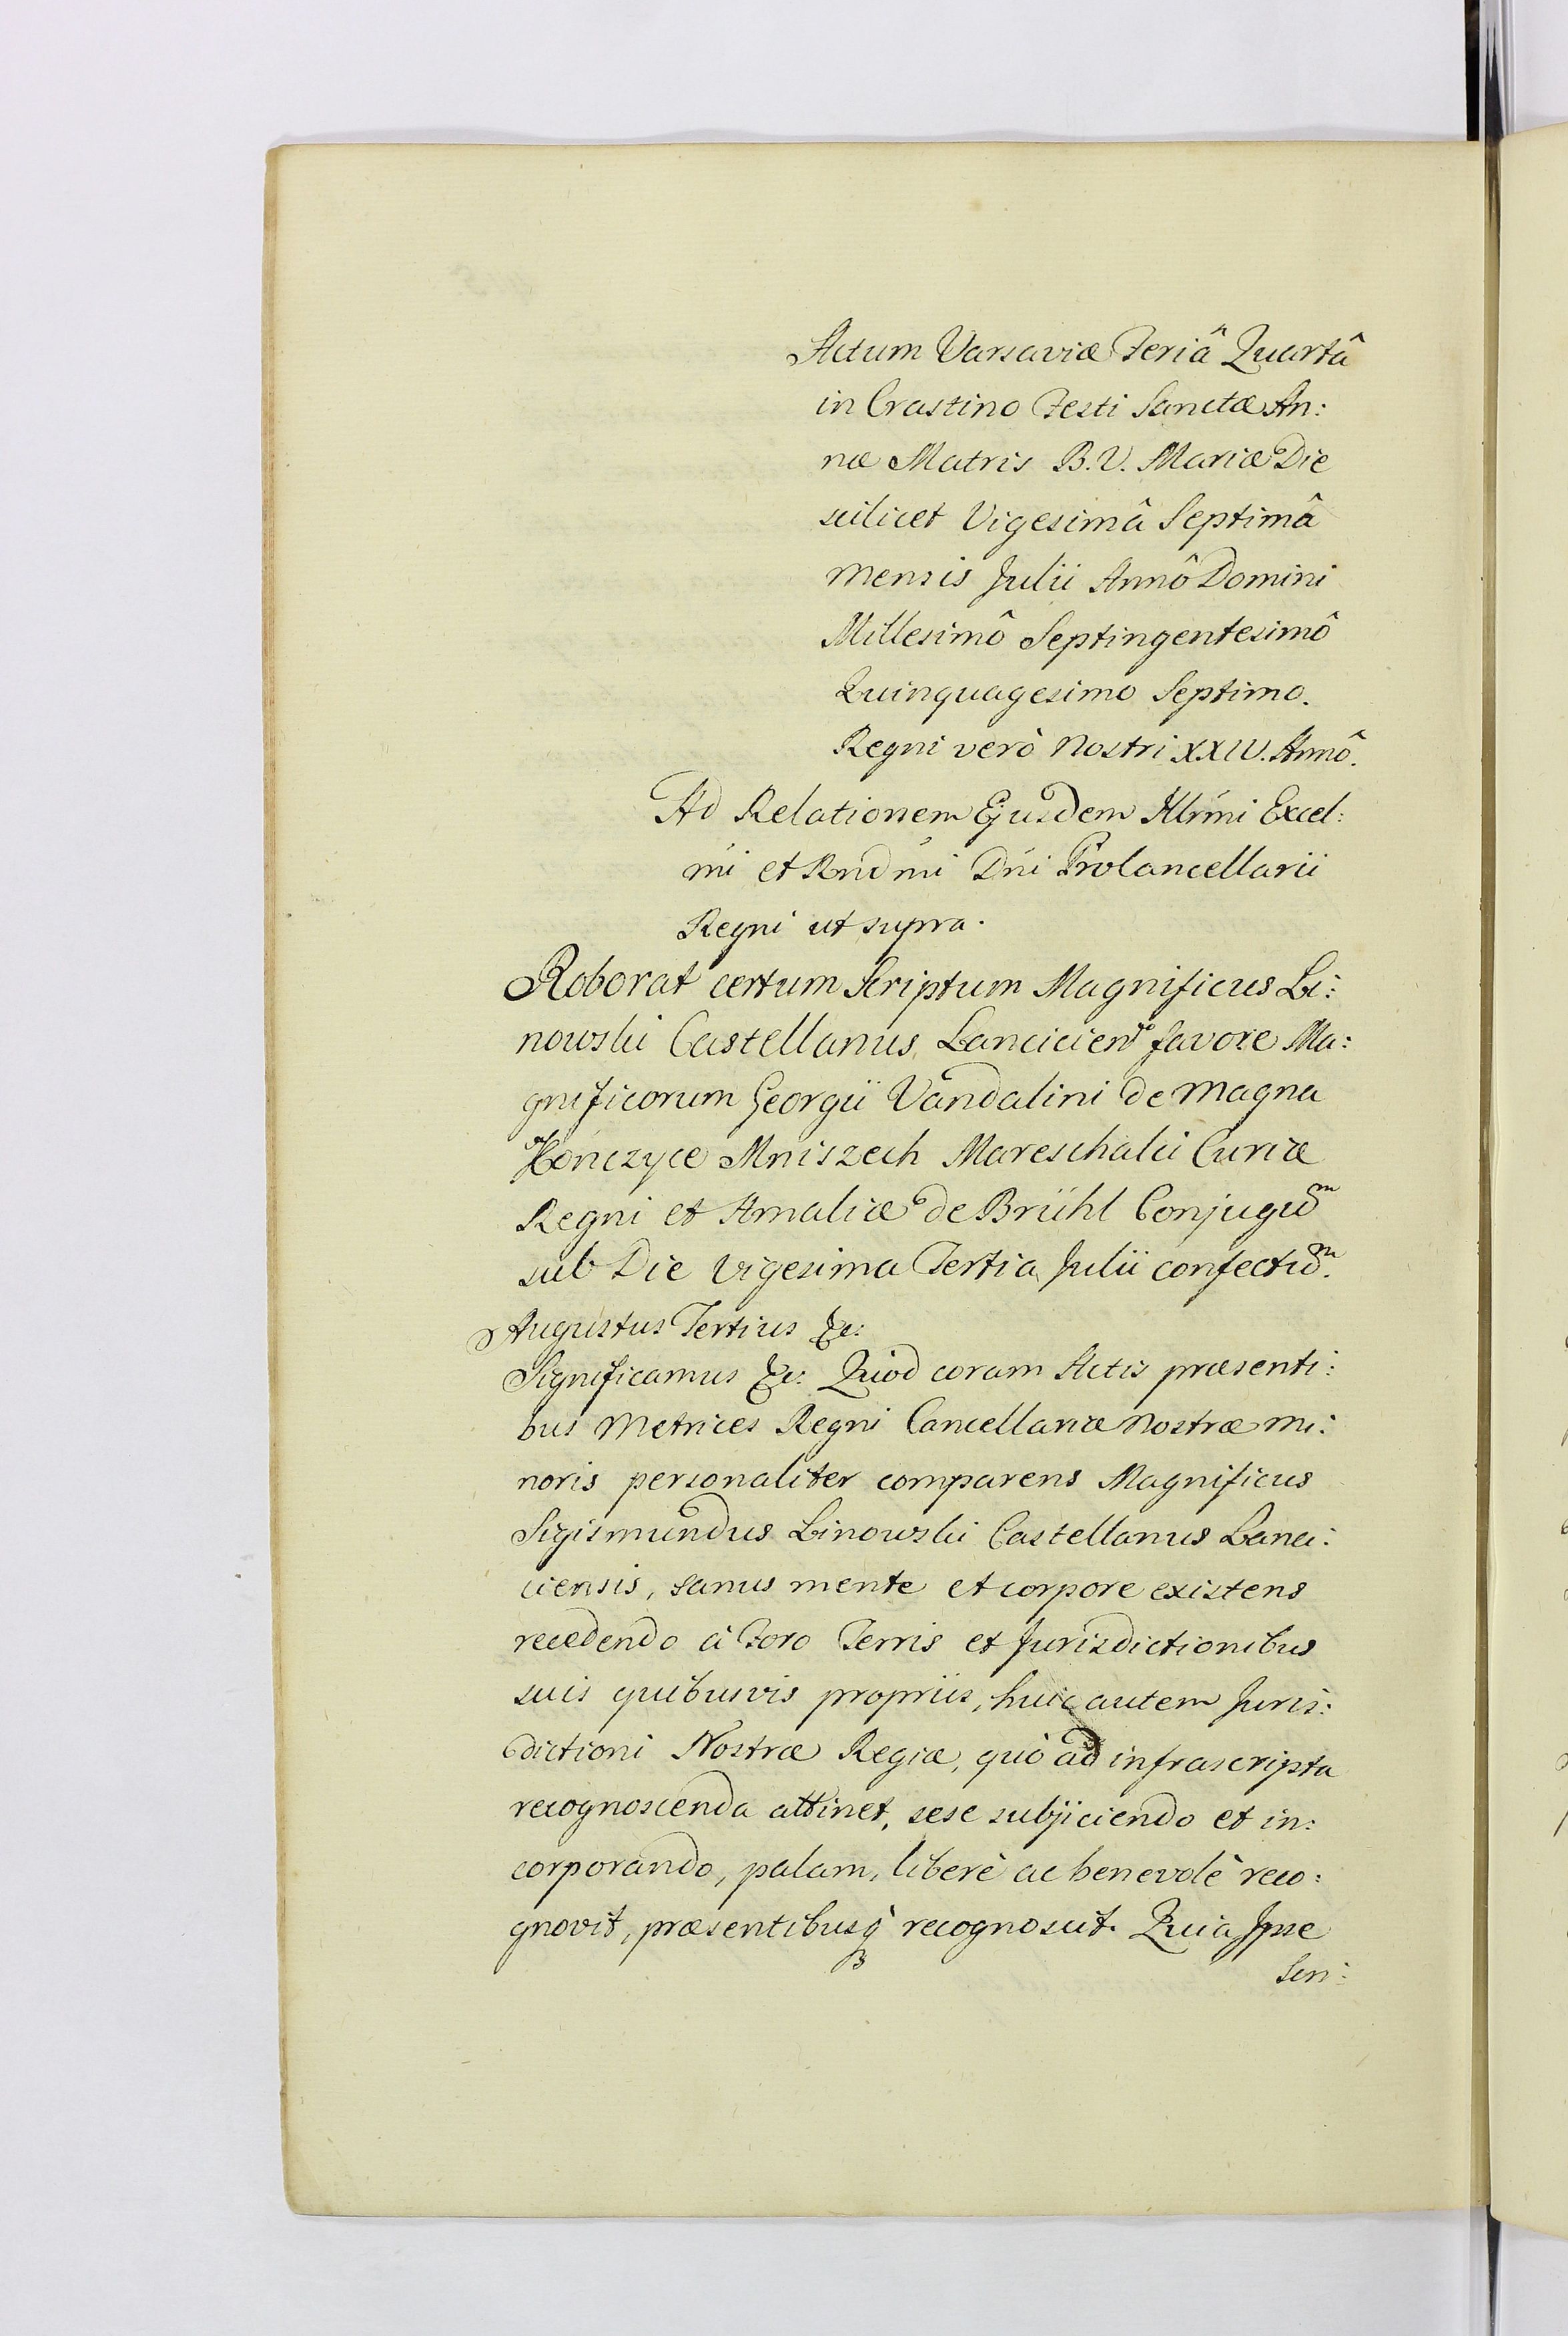 Actum Varsaviæ Feriâ Quartâ
in Crastino Festi Sanctæ An:
næ Matris B.V. Mariæ Die
scilicet Vigesimâ Septimâ
Mensis Julii Annô Domini
Millesimô Septingentesimô
Quinquagesimo Septimo.
Regni verò Nostri XXIV. Annô.
Ad Relationem Ejusdem Illrmi Excel:
mi et Rndmi Dni ProCancellarii
Regni ut supra.
Roborat certum Scriptum Magnificus Li:
nowski Castellanus Lancicien favore Ma:
gnificorum Georgii Vandalini de Magna
Kończyce Mniszech Mareschalci Curiæ
Regni et Amaliæ de Brühl Conjugum
sub Die Vigesima Tertia Julii confectum.
Augustus Tertius &c:
Significamus &c: Quod coram Actis præsenti:
bus Metrices Regni Cancellariæ Nostræ mi:
noris personaliter comparens Magnificus
Sigismundus Linowski Castellanus Lanci:
ciensis, sanus mente et corpore existens
recedendo à Foro Terris et Jurisdictionibus
suis quibusvis propriis, huic autem Juris:
dictioni Nostræ Regiæ, quò ad infrascripta
recognoscenda attinet, sese subjiciendo et in:
corporando, palam, liberè ac benevolè reco:
gnovit, præsentibusq recognoscit. Quia Ipse
Sen: